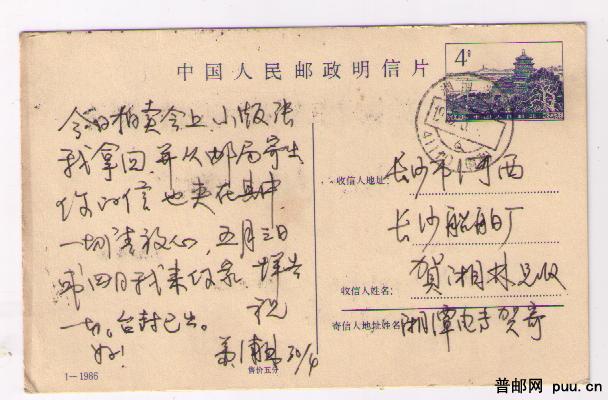 中国人民邮政明信片
4分
中国人民邮政
今日拍卖会上，小版张
我拿回，并从邮局寄出
你的信也夹在其中，
一切请放心，五月三日
或四日我来你家
一切。台封已出。
祝
好！
30/4
收信人地址：
长沙市河西
长沙船舶厂
收信人姓名：
贺湘林兄收
寄信人地址姓名：
湘潭电专贺寄
1—1986
售价五分
普邮网 puu.cn